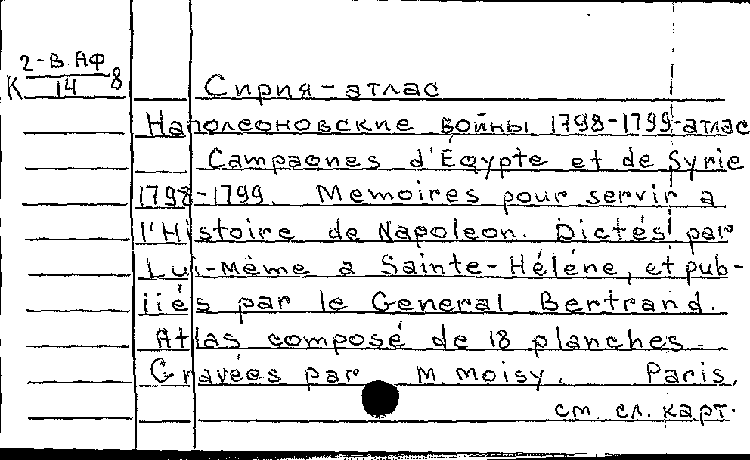 2-В АФ
К 14 8
Сирия-атлас
Наполеоновские войны 1798-1799-атлас
Campagnes d'Égypte et de Syrie
1798-1799. Memoires pour servir a
l'Histoire de Napoleon. Dictés par
Lui-même a Sainte-Hélène, et pub-
liés par le General Bertrand.
Atlas composé de 18 planches
Gravées par M. Moisy. Paris,
см. сл. карт.